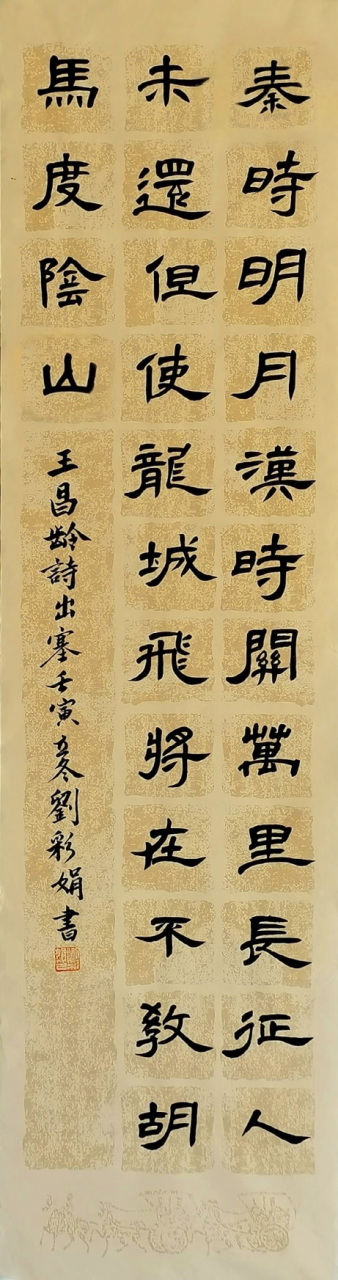 秦時明月漢時關萬里長征人
未還但使龍城飛將在不教胡
馬度陰山
王昌齡詩出塞壬寅立冬劉彩娟書